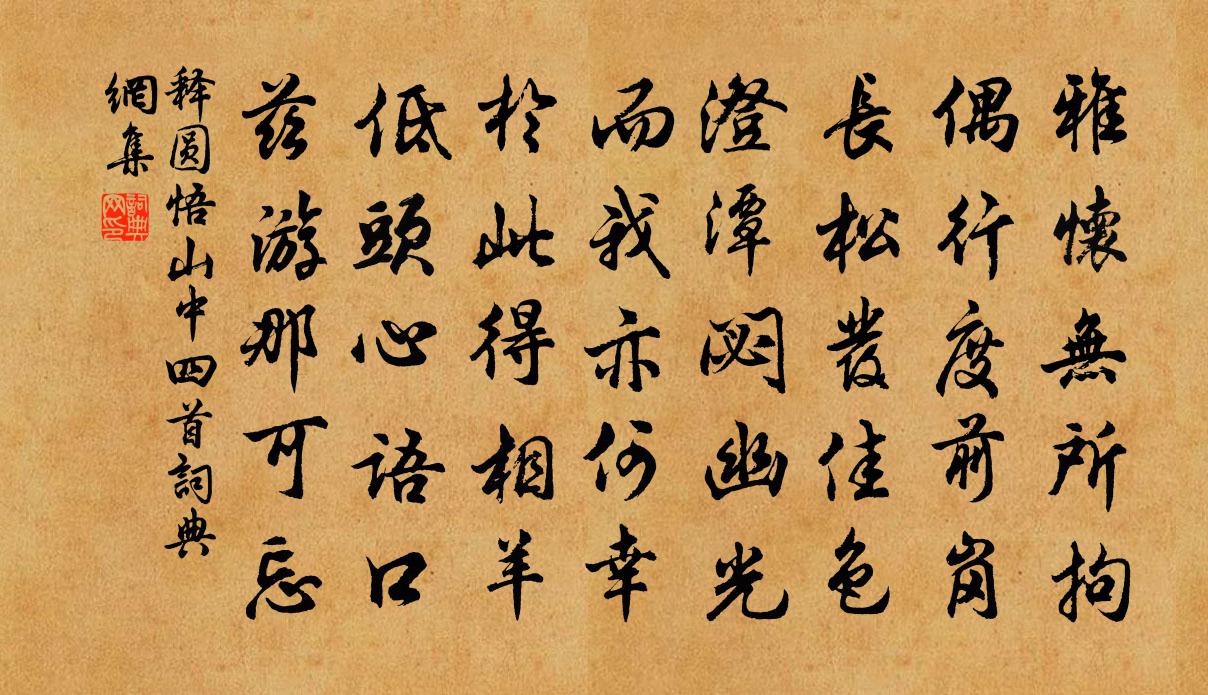 雅懷無所拘
偶行度前崗
長松發佳色
澄潭閟幽光
而我亦何幸
於此得相羊
低頭心語口
茲游那可忘
释圆悟山中四首詞典
網集
詞典
网印